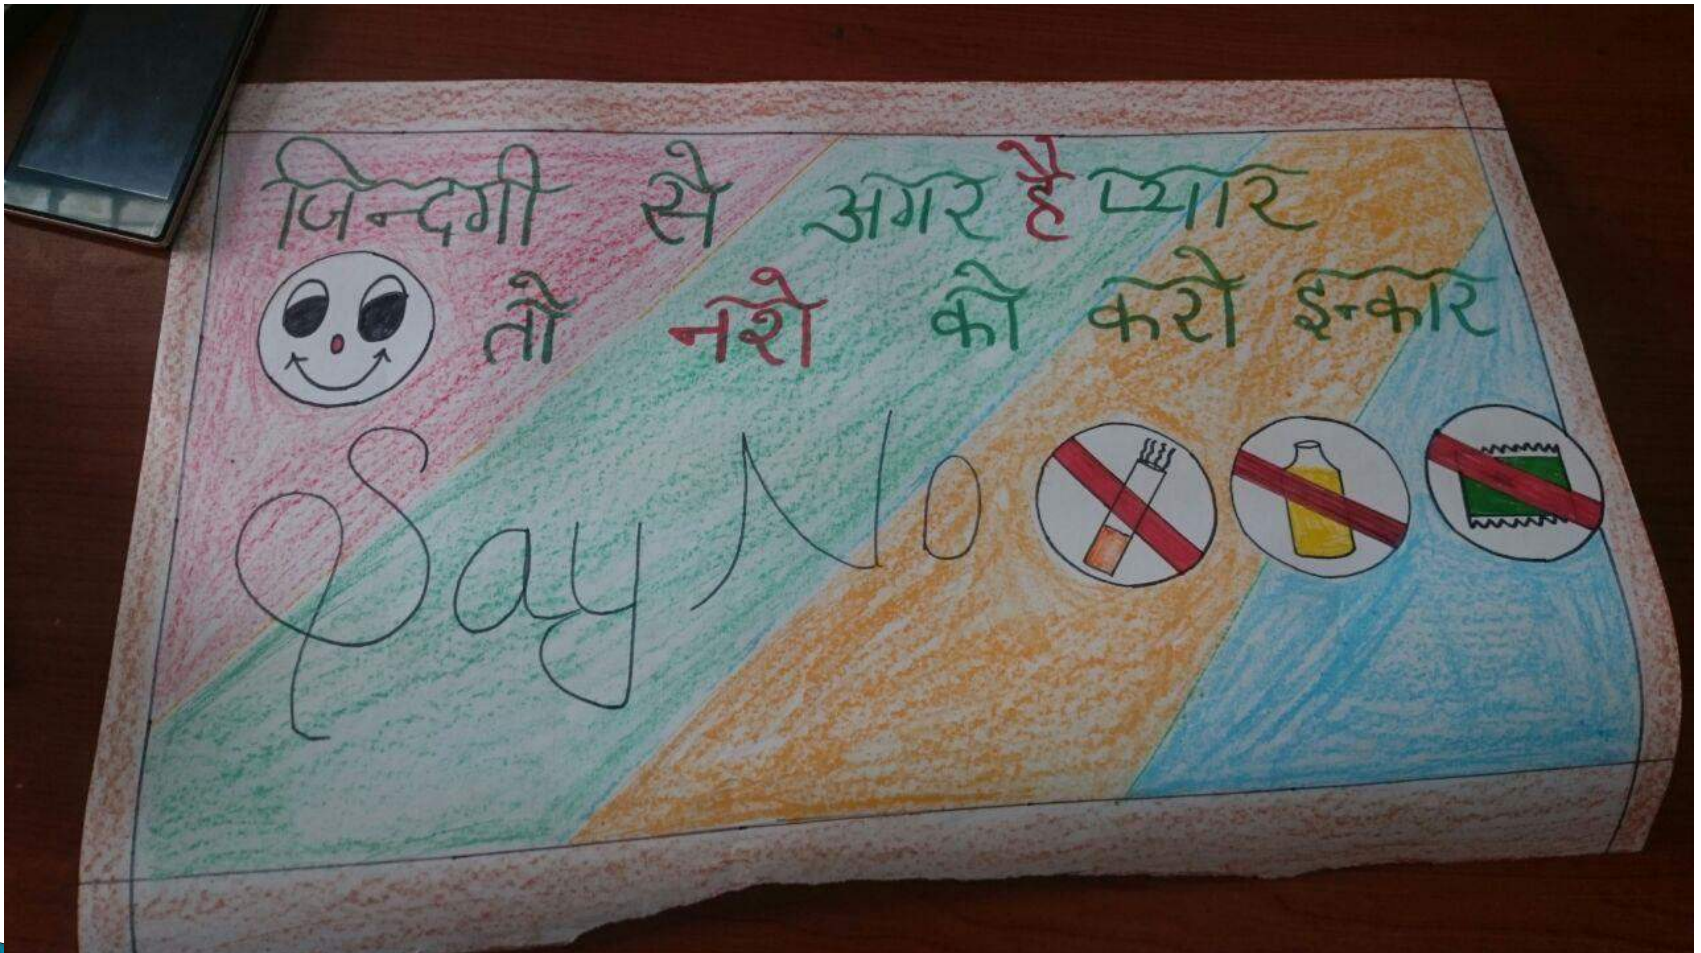 जिन्दगी से अगर है प्यार
तो नशे को करो इन्कार
Say No